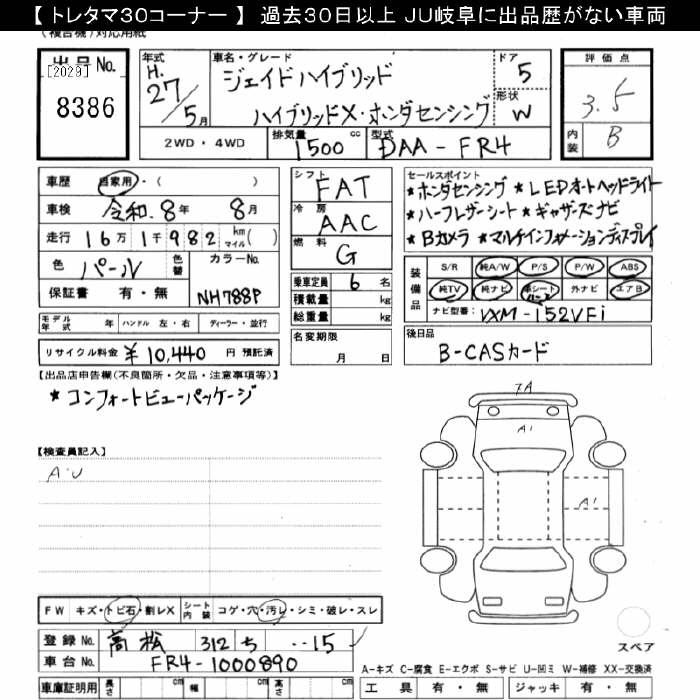 【トレタマ30コーナー】 過去30日以上 JU岐阜に出品歴がない車両
(複合機)対応用紙
出品 No. 年式 車名・グレード ドア 評価点
[2029] H. ジェイドハイブリッド 5
8386 27/5月 ハイブリッドX・ホンダセンシング 形状 W 3.5
2WD・4WD 排気量 1500 cc 型式 DAA-FR4 内装 B
車歴 自家用・( ) シフト FAT セールスポイント
車検 令和.8年 8月 冷房 AAC ★ホンダセンシング ★LEDオートヘッドライト
走行 16万1千982 km マイル( ) 燃料 G ★ハーフレザーシート ★ギャザーズナビ
★Bカメラ ★マルチインフォメーションディスプレイ
色 パール 色替 カラーNo. 乗車定員 6名
保証書 有・無 NH788P 積載量 kg
装備品 S/R 純A/W P/S P/W ABS
純TV 純ナビ 革シート ハーフ 外ナビ エアB
モデル年式 年 ハンドル 左・右 ディーラー・並行 総重量 kg ナビ型番: VXM-152VFi
リサイクル料金 ¥10,440 円 預託済 名変期限 月 日 後日品 B-CASカード
【出品店申告欄(不良箇所・欠品・注意事項等)】
★コンフォートビューパッケージ
7A
A1
【検査員記入】
A・U
A1
FW キズ・トビ石・割レX シート内装 コゲ・穴・汚レ・シミ・破レ・スレ
登録 No. 高松 312 ち ・・15
スペア
車台 No. FR4-1000890
A−キズ C−腐食 E−エクボ S−サビ U−凹ミ W−補修 XX−交換済
車庫証明用 長さ cm 幅 cm 高さ cm 工具 有・無 ジャッキ 有・無